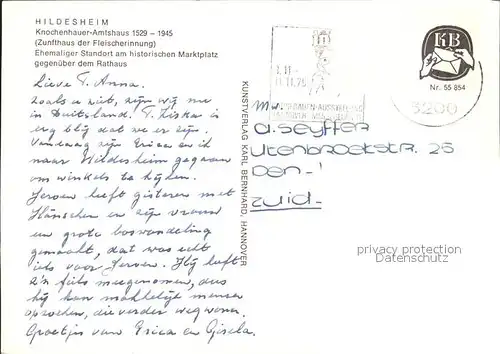 HILDESHEIM
Knochenhauer-Amtshaus 1529 – 1945
(Zunfthaus der Fleischerinnung)
Ehemaliger Standort am historischen Marktplatz
gegenüber dem Rathaus
Lieve T. Anna.
Zoals u ziet, zijn wij me
in Duitsland. T. Ziska is
erg blij dat we er zijn.
Vandaag zijn Erica en ik
naar Hildesheim gegaan
om winkels te kijken.
Jeroen heeft gisteren met
Hänschen en zijn vriend
en grote boswandeling
gemaakt, dat was echt
iets voor Jeroen. Hij heeft
z'n fiets meegenomen, dus
hij kan makkelijk mensen
opzoeken, die verder weg wonen.
Groetjes van Erica en Gisela.
KUNSTVERLAG KARL BERNHARD, HANNOVER
KB
Nr. 55 854
3200
Mw.
A. Seyffer
Utenbroekestr. 26
Den-
Zuid-
privacy protection
Datenschutz